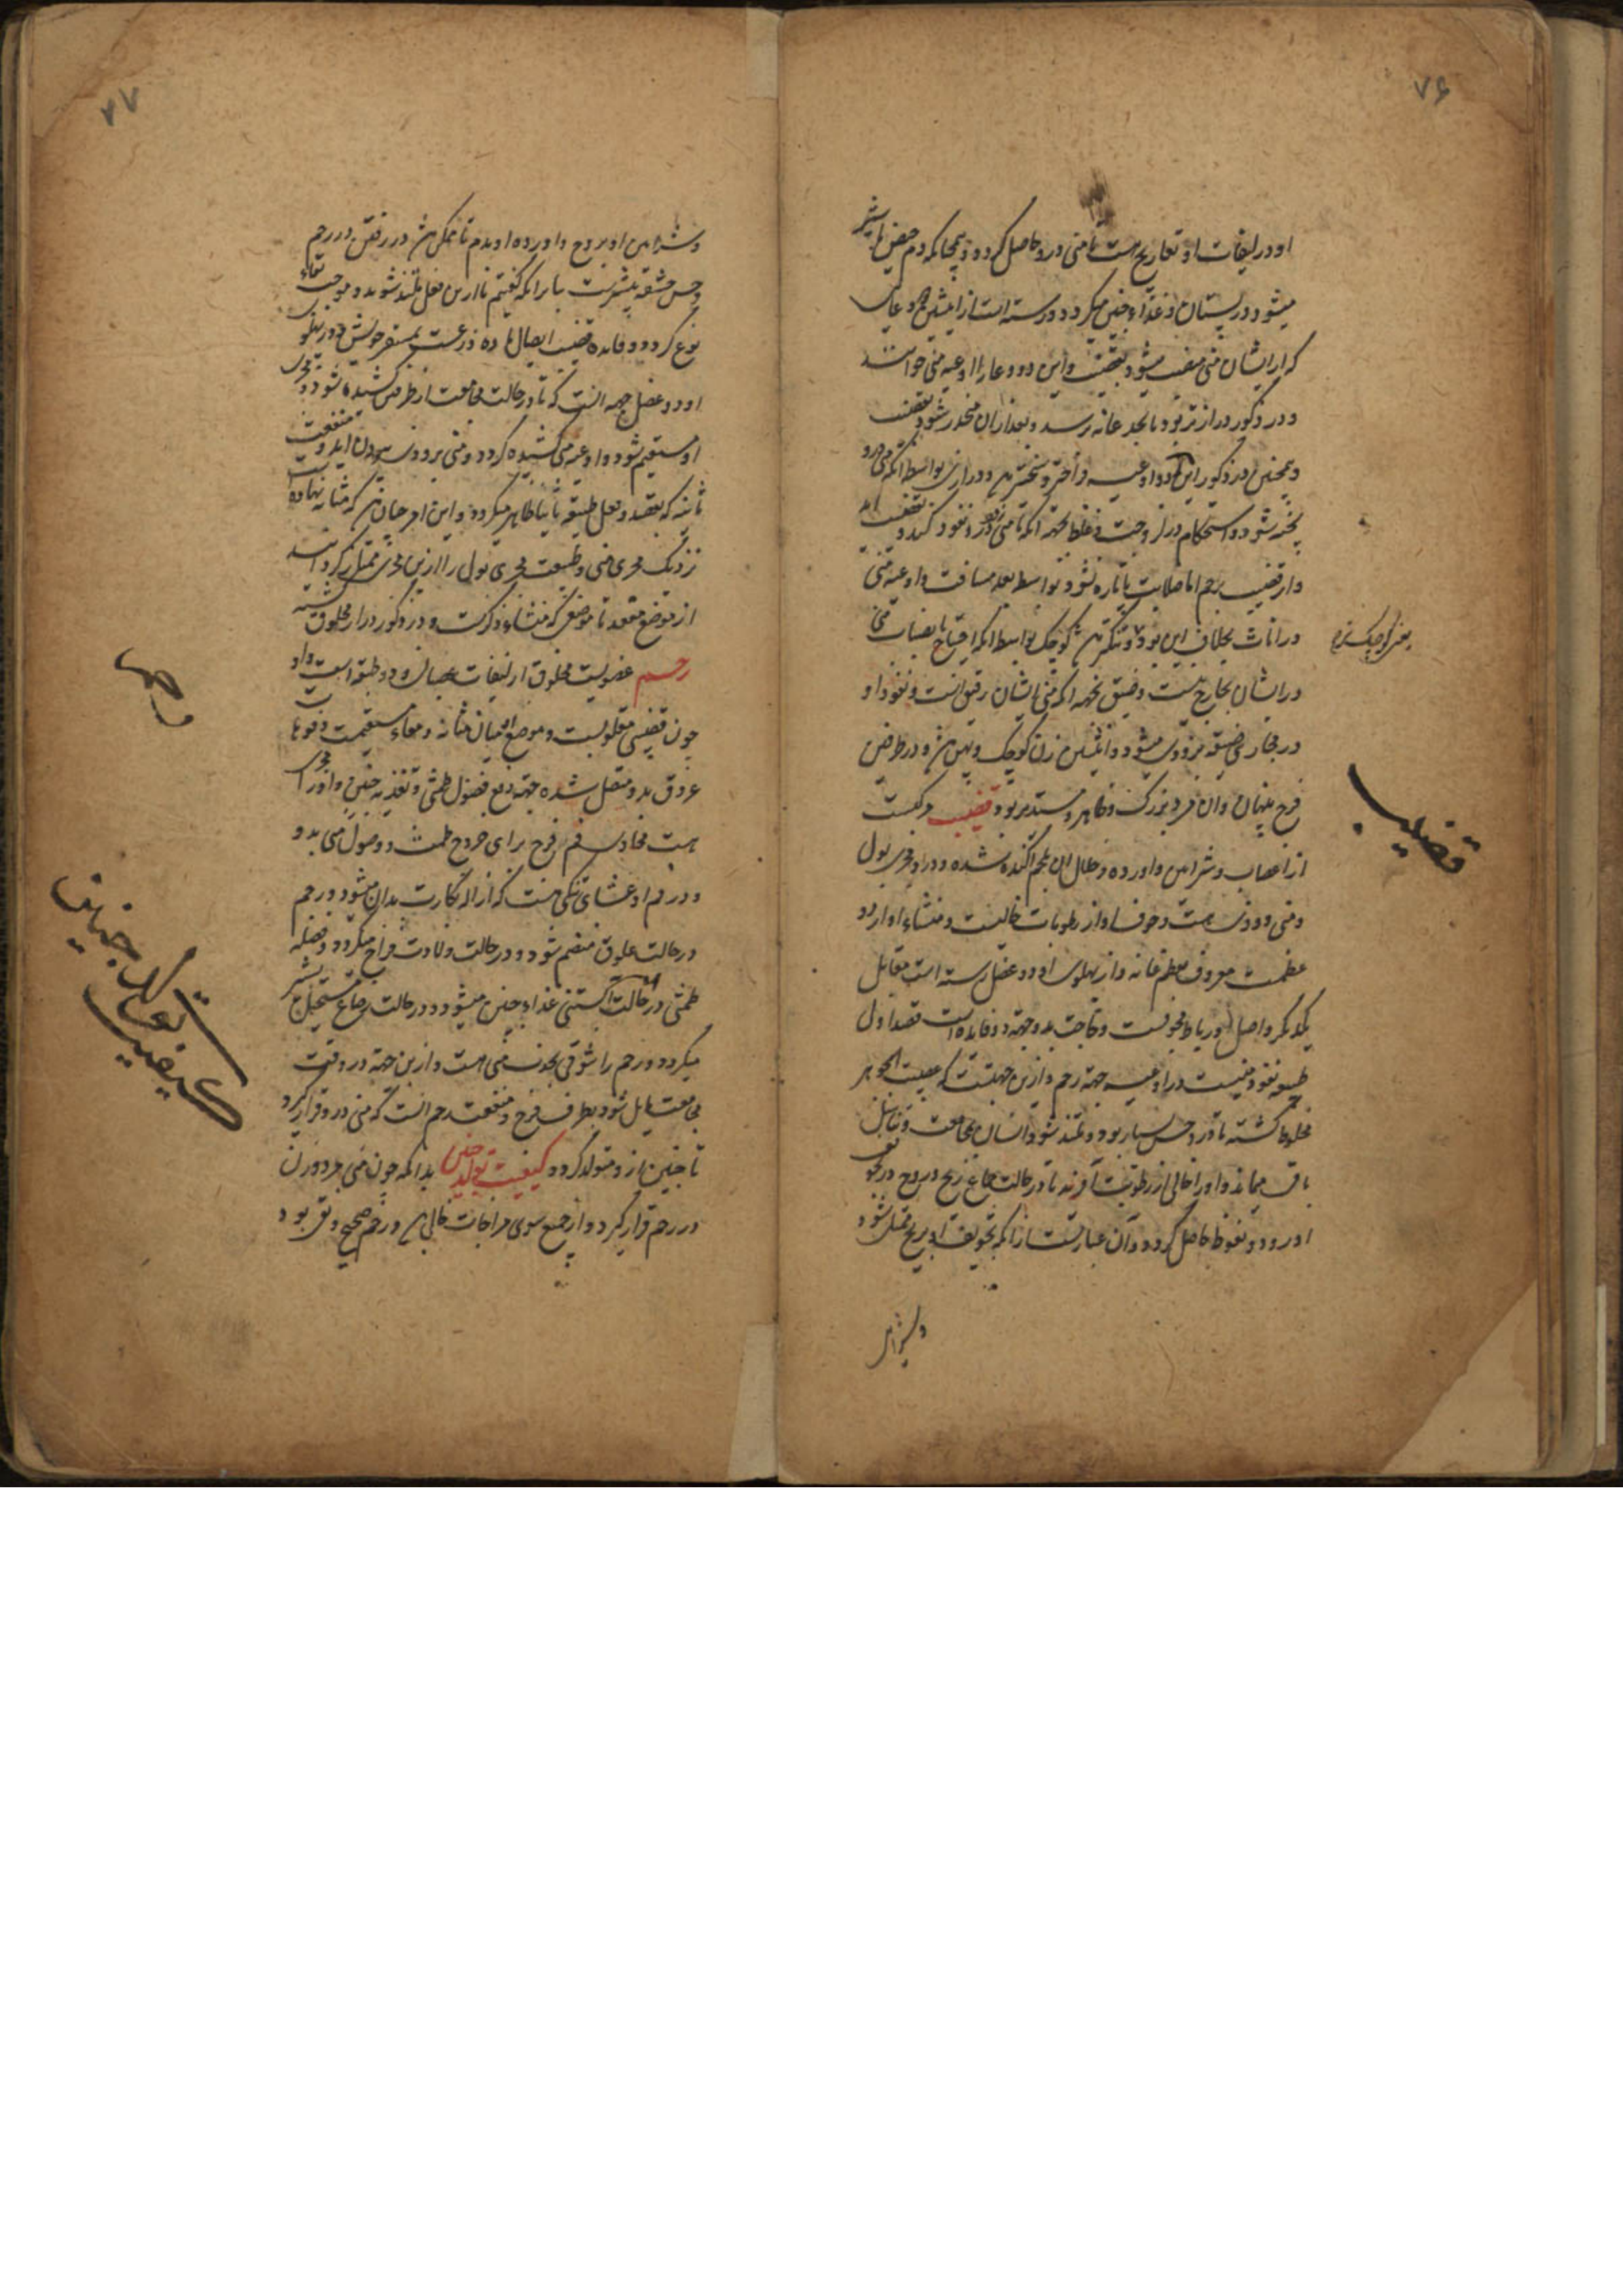 ۷۶
او در لیفات او تعاریج هست تا منی درو حاصل گردد و همچنانکه دم حیض با شیر
میشود در پستان و غذاء جنین میگردد و رسته است از انثیین دو وعای
که از ایشان منی منصب میشود بقضیب و این دو وعا را اوعیه منی خوانند
و در ذکور درازتر بود تا بحد عانه رسد و بعد از ان منحدر شود بقضیب
و همچنین در ذکور این دو اوعیه فراختر و سختتر و درازی بواسطه آنکه منی درو
پخته شود و استحکام و لزوجت و غلظ بجهة آنکه تا منی درو نفوذ کند و بقضیب آید
و از قضیب برحم اما صلابت تا پاره نشود بواسطه بعد مسافت و اوعیه منی
در اناث بخلاف این بود و تنگتر کوچک بواسطه آنکه احتیاج بانصباب منی
در ایشان بخارج نیست و ضیق بجهة آنکه منی ایشان رقیق است و نفوذ او
در مجاری ضیقه بزودی میشود و انثیین زن کوچک و پهن و در طرفین
فرج پنهان و ان مرد بزرگ و ظاهر و مستدیر بود قضیب مرکبست
از اعصاب و شرایین و اورده و خلال ان بلحم آکنده شده و درو مجری بول
و منی و ودی هست و جوف او از رطوبات خالیست و منشاء او از دو
عظمست معروف بعظم عانه و از پهلوی او دو عضل رسته است مقابل
یکدیگر و اصل او رباط مجوفست و حاجت بدو جهة دو فایده است قصد اول
طبیعه نفوذ منیست در اوعیه جهة رحم و ازین جهتست که عصبیت الجوهر
مخلوط گشته تا درو حس بسیار بود و متلذذ شود انسان بمجامعت و تناسل
باقی میماند و او را خالی از رطوبت آفریده تا در حالت جماع ریح و روح در تجو
او رود و نعوظ حاصل گردد و آن عبارتست از آنکه تجویف او بریح ممتلی شود
و شرایین
قضیب
۷۷
و شرایین او بروح و اورده او بدم تا ممکن در رفتن در رحم
و حس حشفه بیشترست بنا برانکه گفتیم تا ازین فعل متلذذ شوند و موجب بقاء
نوع گردد و فایده قضیب ایصال ماده ذرعست بمستقر خویش و در پهلوی
او دو عضل جهة انست که تا در حالت مجامعت از طرفین کشیده شود و مجری
او مستقیم شود و اوعیه منی کشیده گردد و منی بزودی بیرون آید و منفعت
ثانیه که بقصد و فعل طبیعه ثانیا ظاهر میگردد و این امر چنان که مثانه نهاده است
نزدیک مجری منی و طبیعت مجری بول را ازین مجری متمیز گردانید
از موضع مقعد تا موضعی که منشاء ذکرست و در ذکور دراز مخلوق گشته
رحم عضویست مخلوق از لیفات عصبانی و دو طبقه است و او
چون قضیبی مقلوبست و موضع او میان مثانه و معاء مستقیمست و فوهات
عروق بدو متصل شده جهة دفع فضول طمثی و تغذیه جنین و او را مجری
هست محاذی فم فرج برای خروج طمث و وصول منی بدو
و در فم او غشای تنگی هست که ازاله بکارت بدان میشود و رحم
در حالت علوق منضم شود و در حالت ولادت فراخ میگردد و فضله
طمثی در حالت آبستنی غذاء جنین میشود و در حالت رضاع مستحیل بشیر
میگردد و رحم را شوقی بجذب منی هست و ازین جهة در وقت
مجامعت مایل شود بطرف فرج و منفعت رحم انست که منی درو قرار گیرد
تا جنین ازو متولد گردد کیفیت تولد جنین بدانکه چون منی مرد و زن
در رحم قرار گیرد و از جمیع سوی مزاجات خالی و رحم صحیح و نقی بود
رحم
کیفیت تولد جنین